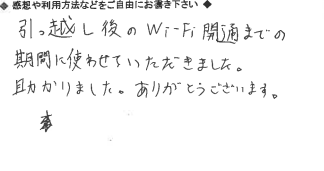 ◆ 感想や利用方法などをご自由にお書き下さい ◆
引っ越し後のWi-Fi開通までの
期間に使わせていただきました。
助かりました。ありがとうございます。